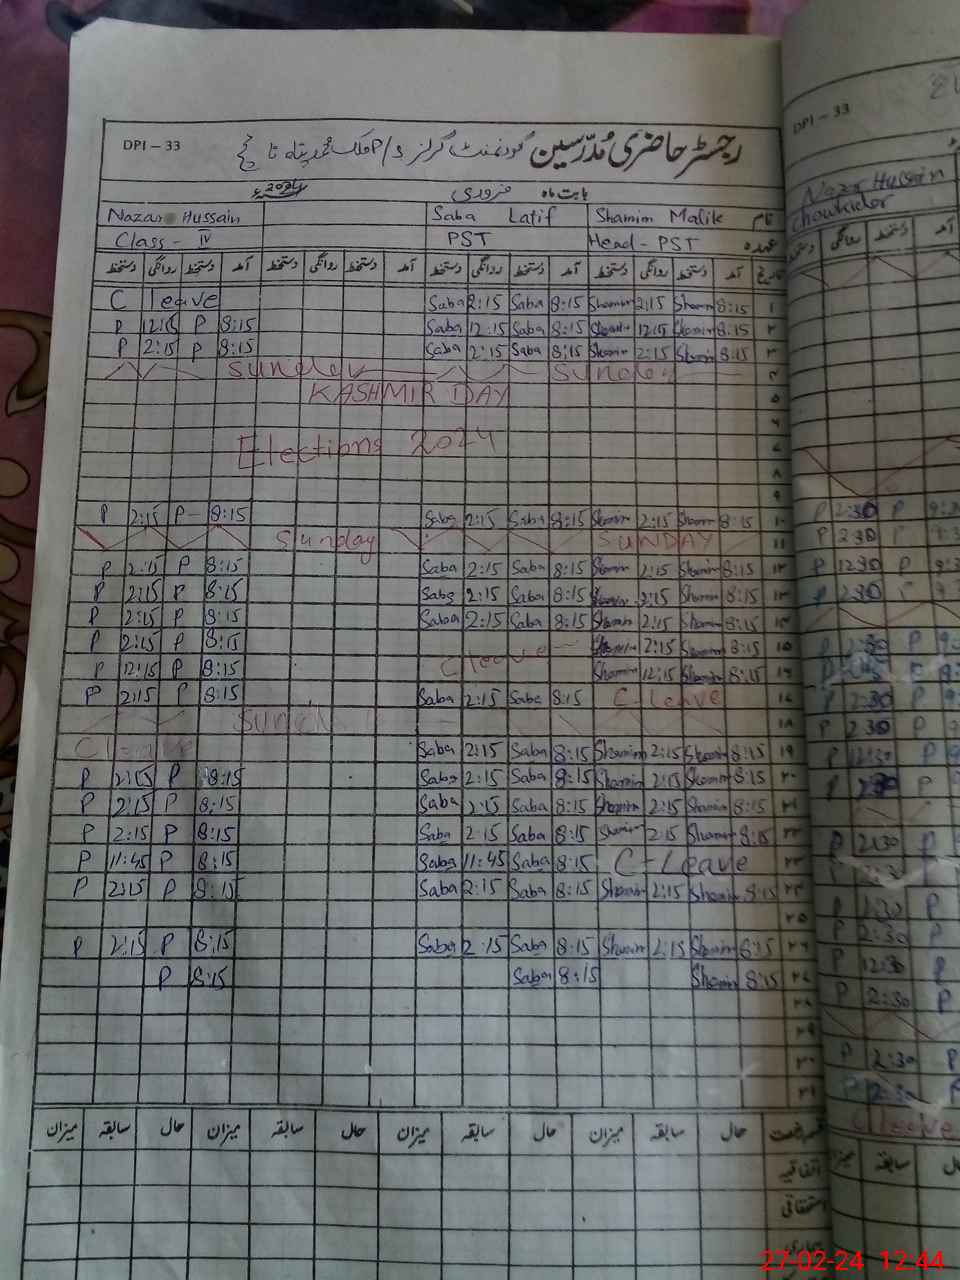 DPI – 33
رجسٹر حاضری مُدرّسین گورنمنٹ گرلز
بابت ماہ فروری 2024
Nazar Hussain Saba Latif Shamim Malik نام
Class - IV PST Head - PST عہدہ
دستخط روانگی دستخط آمد دستخط روانگی دستخط آمد دستخط روانگی دستخط آمد دستخط روانگی دستخط آمد تاریخ
C leave Saba 2:15 Saba 8:15 Shamim 2:15 Shamim 8:15 ۱
P 12:15 P 8:15 Saba 12:15 Saba 8:15 Shamim 12:15 Shamim 8:15 ۲
P 2:15 P 8:15 Saba 2:15 Saba 8:15 Shamim 2:15 Shamim 8:15 ۳
Sunday Sunday ۴
KASHMIR DAY ۵
۶
Elections 2024 ۷
۸
۹
P 2:15 P 8:15 Saba 2:15 Saba 8:15 Shamim 2:15 Shamim 8:15 ۱۰
Sunday SUNDAY ۱۱
P 2:15 P 8:15 Saba 2:15 Saba 8:15 Shamim 2:15 Shamim 8:15 ۱۲
P 2:15 P 8:15 Saba 2:15 Saba 8:15 Shamim 2:15 Shamim 8:15 ۱۳
P 2:15 P 8:15 Saba 2:15 Saba 8:15 Shamim 2:15 Shamim 8:15 ۱۴
P 2:15 P 8:15 C leave Shamim 2:15 Shamim 8:15 ۱۵
P 12:15 P 8:15 Shamim 12:15 Shamim 8:15 ۱۶
P 2:15 P 8:15 Saba 2:15 Saba 8:15 C-Leave ۱۷
۱۸
C leave Saba 2:15 Saba 8:15 Shamim 2:15 Shamim 8:15 ۱۹
P 2:15 P 8:15 Saba 2:15 Saba 8:15 Shamim 2:15 Shamim 8:15 ۲۰
P 2:15 P 8:15 Saba 2:15 Saba 8:15 Shamim 2:15 Shamim 8:15 ۲۱
P 2:15 P 8:15 Saba 2:15 Saba 8:15 Shamim 2:15 Shamim 8:15 ۲۲
P 11:45 P 8:15 Saba 11:45 Saba 8:15 C-Leave ۲۳
P 2:15 P 8:15 Saba 2:15 Saba 8:15 Shamim 2:15 Shamim 8:15 ۲۴
۲۵
P 2:15 P 8:15 Saba 2:15 Saba 8:15 Shamim 2:15 Shamim 8:15 ۲۶
P 8:15 Saba 8:15 Shamim 8:15 ۲۷
۲۸
۲۹
۳۰
۳۱
میزان سابقہ حال میزان سابقہ حال میزان سابقہ حال میزان سابقہ حال
اتفاقیہ
استحقاقی
DPI – 33
Nazar Hussain
Chowkidar
P 2:30 P
2:30
P 12:30 P
P 2:30
P 2:30 P
P 2:30
P 2:30
P 12:30 P
P 2:30 P
2:30
P 2:30 P
P 12:30 P
P 2:30 P
P 2:30 P
C leave
سابقہ
27-02-24 12:44